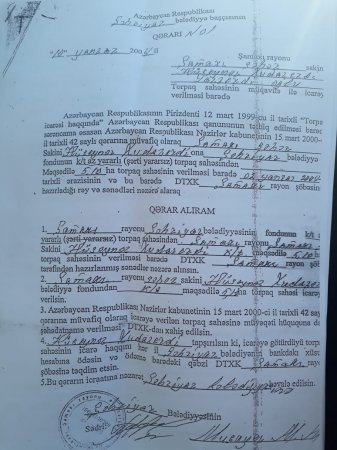 Azərbaycan Respublikası
Şəhriyar bələdiyyə başçısının
QƏRARI №01
"10" yanvar 2004 il
Şamaxı rayonu
Şamaxı şəhər sakin
Hüseynov Xudaverdi
Torpaq sahəsinin müqavilə ilə icarəyə
verilməsi barədə
Azərbaycan Respublikasının Pirizdenti 12 mart 1999-cu il tarixli "Torpaq
icarəsi haqqında" Azərbaycan Respublikası
sərəncama əsasən Azərbaycan Respublikası Nazirlər kabunetinin 15 mart 2000-
il tarixli 42 saylı qərarına müvafiq olaraq Şamaxı şəhər
Sakini Hüseynov Xudaverdi ona Şəhriyar bələdiyyə
fondunun k/t az yararlı (şərti yararsız) torpaq sahəsindən
Məqsədilə 5,10 ha torpaq sahəsinin verilməsi barədə
tarixli ərizəsinin və bu barədə DTXK Şamaxı rayon şöbəsin
hazırladığı rəy və sənədləri nəzərə alaraq
QƏRAR ALIRAM
1. Şamaxı rayonu Şəhriyar bələdiyyəsinin fondunun k/t
yararlı (şərti yararsız) torpaq sahəsindən Şamaxı rayonu Şamaxı
Sakini Hüseynov Xudaverdi k/t məqsədilə 5,10
ha torpaq sahəsinin verilməsi barədə DTXK Şamaxı rayon
tərəfindən hazırlanmış sənədlər nəzərə alınsın.
2. Şamaxı rayonu şəhər sakini Hüseynov Xudaverdi
bələdiyyə fondundan k/t məqsədilə 5,10 ha torpaq sahəsi icarəyə
verilsin.
3. Azərbaycan Respublikası Nazirlər kabunetinin 15 mart 2000-ci il tarixli 42
qərarına müvafiq olaraq icarəyə verilən torpaq sahəsinə mülkiyəti hüququna da
şəhadətnamə verilməsi DTXK-dan xahiş edilsin.
4. Hüseynov Xudaverdi tapşırılsın ki, icarəyə götürdüyü torpaq
sahəsinin icarə haqqını hər il Şəhriyar bələdiyyənin bankdakı xüsusi
hesabına ödəsin və ödəmə barədəki qəbzi DTXK Şamaxı rayon
şöbəsinə təqdim etsin.
5. Bu qərarın icrasına nəzarət Şəhriyar bələdiyyəsinə həvalə edilsin.
Şəhriyar Bələdiyyəsinin
Sədri